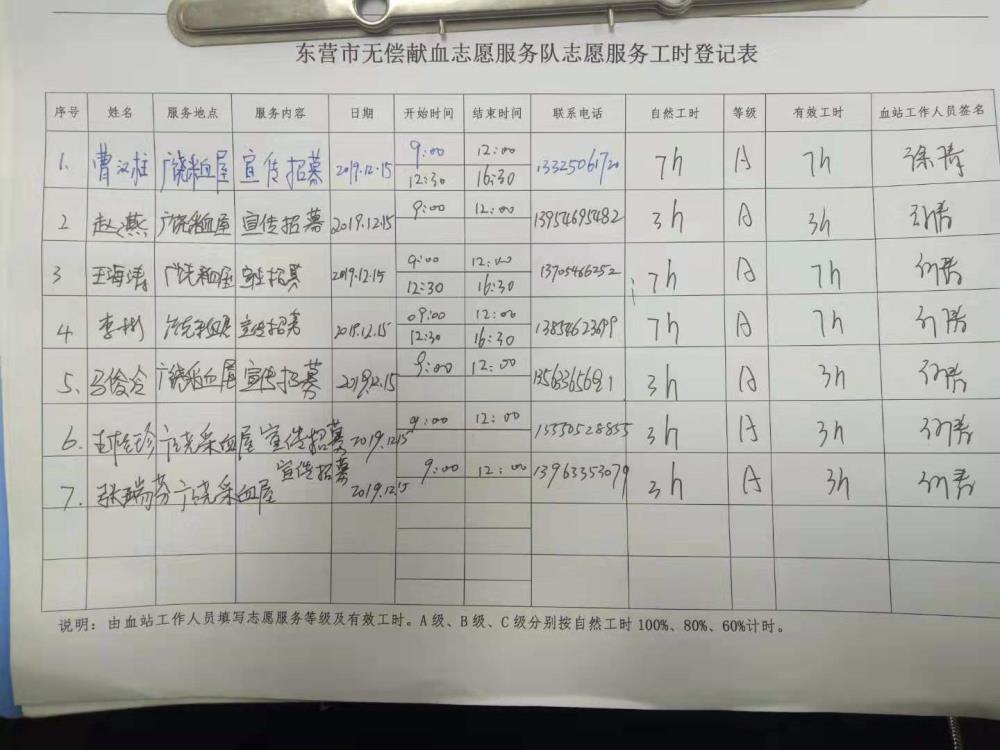 东营市无偿献血志愿服务队志愿服务工时登记表
序号 姓名 服务地点 服务内容 日期 开始时间 结束时间 联系电话 自然工时 等级 有效工时 血站工作人员签名
1. 曹汉柱 广饶采血屋 宣传招募 2019.12.15 9:00 12:00 13325061720 7h A 7h 徐涛
12:30 16:30
2 赵燕 广饶采血屋 宣传招募 2019.12.15 9:00 12:00 13954695482 3h A 3h
3 王海涛 广饶采血屋 宣传招募 2019.12.15 9:00 12:00 13705466252 7h A 7h
12:30 16:30
4 李彬 广饶采血屋 宣传招募 2019.12.15 09:00 12:00 13854623699 7h A 7h
12:30 16:30
5. 广饶采血屋 宣传招募 2019.12.15 9:00 12:00 3h A 3h
6. 广饶采血屋 宣传招募 2019.12.15 9:00 12:00 15550528855 3h A 3h
7. 张瑞芬 广饶采血屋 宣传招募 2019.12.15 9:00 12:00 13963353079 3h A 3h
说明：由血站工作人员填写志愿服务等级及有效工时。A级、B级、C级分别按自然工时100%、80%、60%计时。